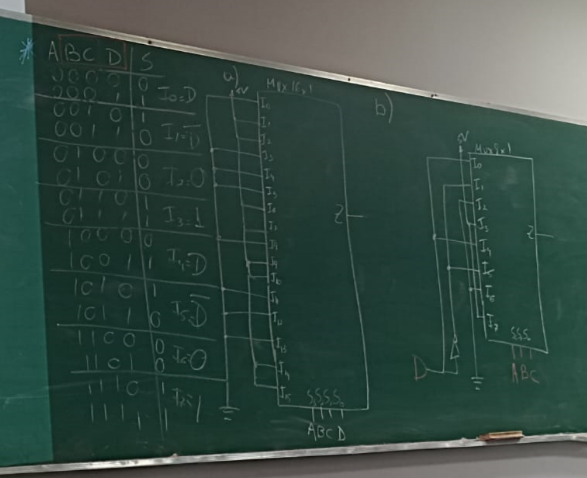 * A B C D | S
0 0 0 0 0
0 0 0 1 1 I₀=D
0 0 1 0 1
0 0 1 1 0 I₁=D̅
0 1 0 0 0
0 1 0 1 0 I₂=0
0 1 1 0 1
0 1 1 1 1 I₃=1
1 0 0 0 0
1 0 0 1 1 I₄=D
1 0 1 0 1
1 0 1 1 0 I₅=D̅
1 1 0 0 0
1 1 0 1 0 I₆=0
1 1 1 0 1
1 1 1 1 1 I₇=1
a)
Mux 16x1
I₀
I₁
I₂
I₃
I₄
I₅
I₆
I₇
I₈
I₉
I₁₀
I₁₁
I₁₂
I₁₃
I₁₄
I₁₅
Z
A B C D
b)
Mux 8x1
I₀
I₁
I₂
I₃
I₄
I₅
I₆
I₇
Z
D
A B C